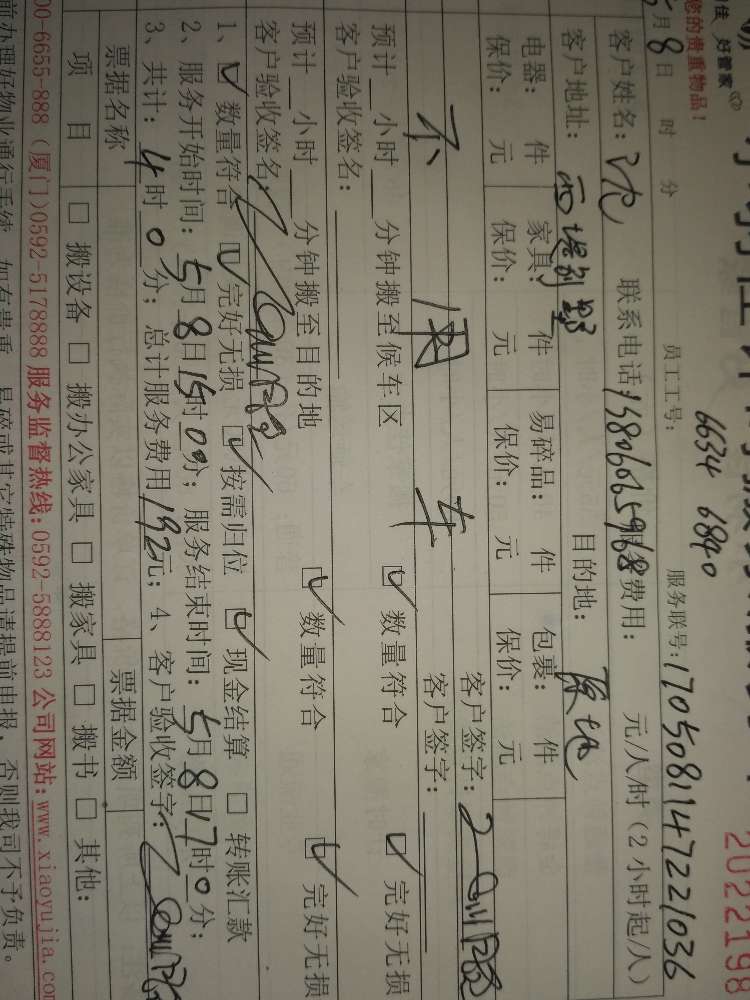 佳 好管家
您的贵重物品！
2022198
月8日 时 分 员工工号： 6634 6840 服务联号：1705081147221036
客户姓名： 联系电话：15806065968 服务费用： 元/人/时（2小时起/人）
客户地址：西堤别墅 目的地：原地
电器： 件 家具： 件 易碎品： 件 包裹： 件
保价： 元 保价： 元 保价： 元 保价： 元
不用车 客户签字：
客户签字：
预计 小时 分钟搬至候车区 ☑ 数量符合 ☑ 完好无损
客户验收签名：
预计 小时 分钟搬至目的地 ☑ 数量符合 ☑ 完好无损
客户验收签名：
1、☑ 数量符合 ☑ 完好无损 ☑ 按需归位 ☑ 现金结算 □ 转账汇款
2、服务开始时间：5月8日15时0分；服务结束时间：5月8日17时0分；
3、共计：4时0分；总计服务费用192元；4、客户验收签字：
票据名称 票据金额
项 目 □ 搬设备 □ 搬办公家具 □ 搬家具 □ 搬书 □ 其他：
00-6655-888（厦门）0592-5178888 服务监督热线：0592-5888123 公司网站：www.xiaoyujia.com
前办理好物业通行手续，如有贵重、易碎或其它特殊物品请提前申报，否则我司不予负责。